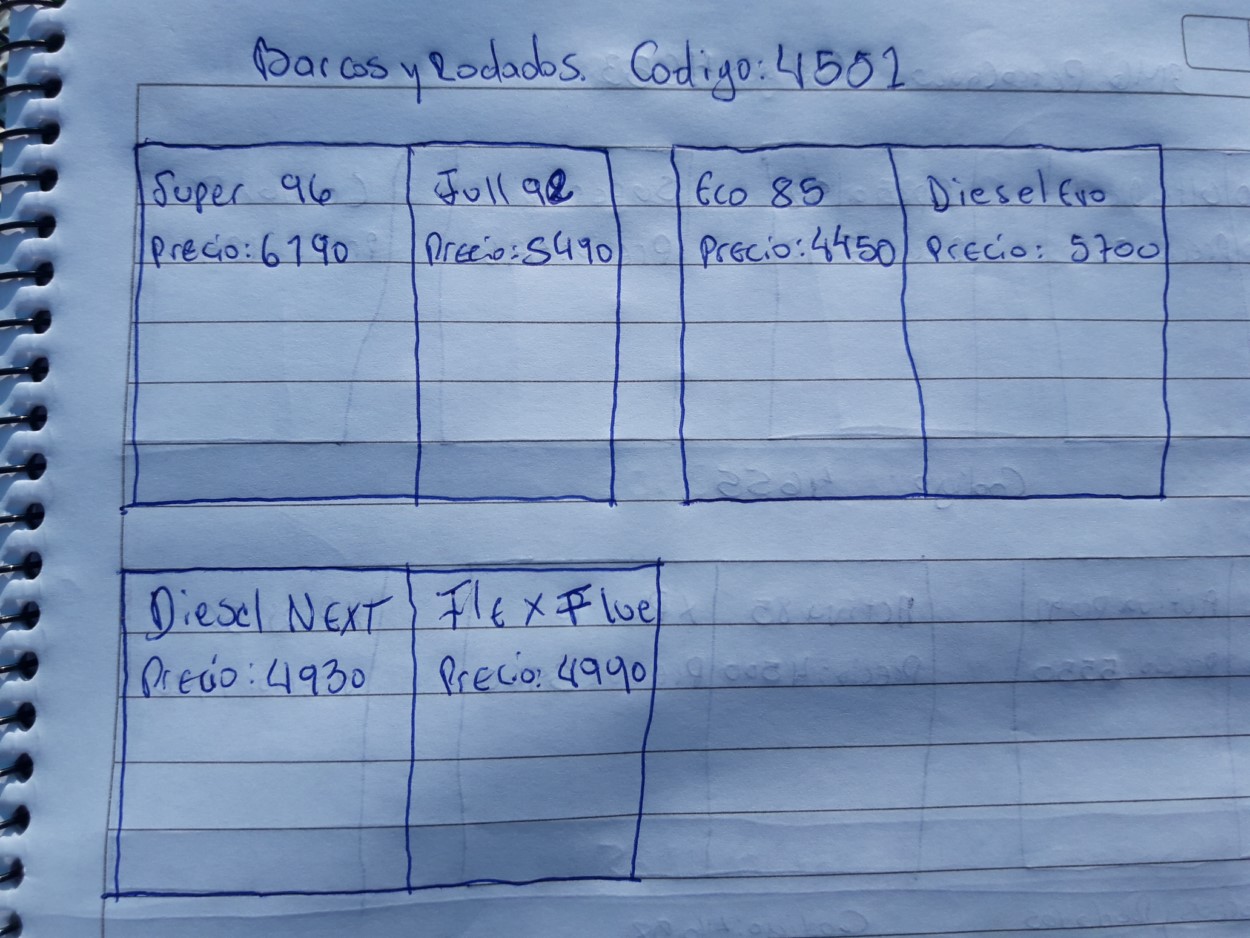 Barcos y Rodados. Codigo: 4501
Super 96
Precio: 6190
Full 92
Precio: 5490
Eco 85
Precio: 4450
Diesel Evo
Precio: 5700
Diesel NEXT
Precio: 4930
Flex Flue
Precio: 4990